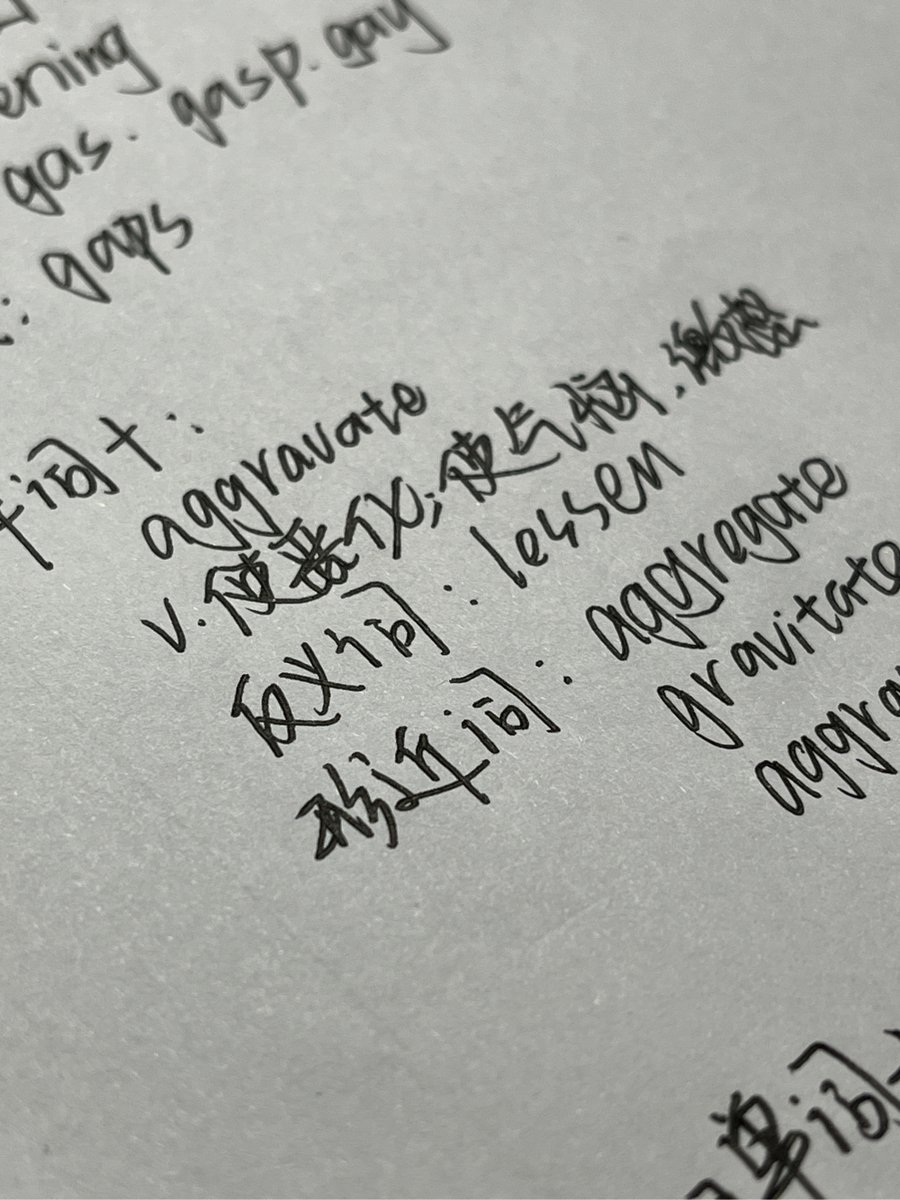 ening
gas. gasp. gay
: gaps
词十:
aggravate
v. 使恶化;使气恼,激怒
反义词: lessen
形近词: aggregate
gravitate
aggra
单词